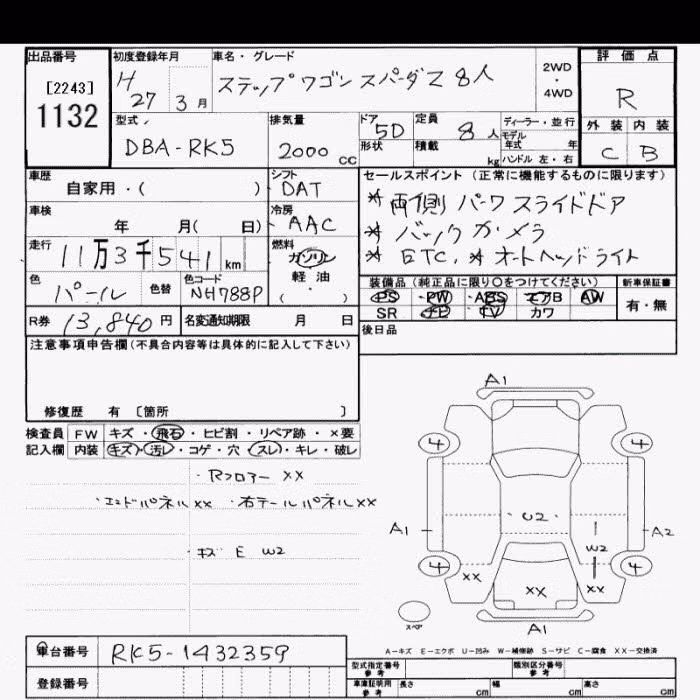 出品番号
[2243]
1132
初度登録年月
H 27 3 月
車名・グレード
ステップワゴン スパーダZ 8人
2WD
・
4WD
評価点
R
外装 内装
C B
型式
DBA-RK5
排気量
2000 cc
ドア
5D
形状
定員
8 人
積載
kg
ディーラー・並行
モデル年式 年
ハンドル 左・右
車歴
自家用・( )
シフト
DAT
車検
年 月( 日)
冷房
AAC
走行
11万3千541 km
燃料
ガソリン
軽・油
( ・ )
色
パール
色替
色コード
NH788P
R券 13,840 円
名変通知期限 月 日
セールスポイント (正常に機能するものに限ります)
* 両側パワースライドドア
* バックカメラ
* ETC. * オートヘッドライト
装備品 (純正品に限り○をつけてください)
PS ・PW ・ABS エアB AW
SR ナビ TV カワ
新車保証書
有・無
後日品
注意事項申告欄 (不具合内容等は具体的に記入して下さい)
修復歴 有 〔箇所 〕
検査員
記入欄
FW キズ・飛石・ヒビ割・リペア跡・×要
内装 キズ・汚レ・コゲ・穴・スレ・キレ・破レ
・Rフロアー XX
・エンドパネル XX ・右テールパネル XX
・キズ E W2
A1
4
4
A1
U2
W2
A2
4
XX
XX
XX
4
スペア
A1
A-キズ E-エクボ U-凹み W-補修跡 S-サビ C-腐食 XX-交換済
車台番号 RK5-1432359
登録番号
型式指定番号
参考
類別区分番号
参考
車庫証明用
参考
長さ cm 幅 cm 高さ cm